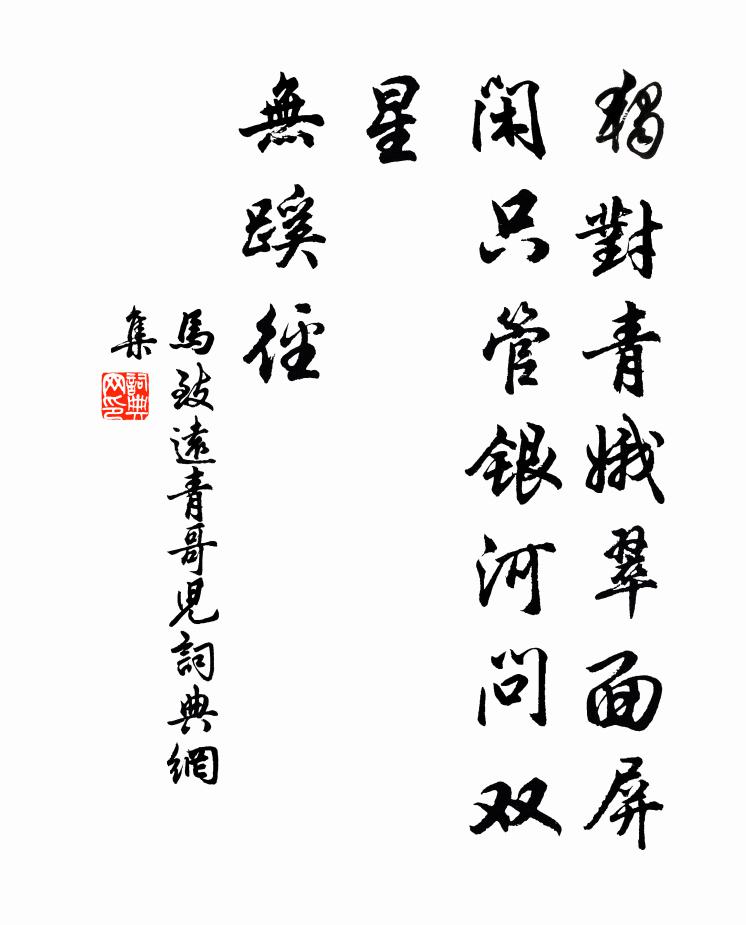 獨對青娥翠画屏
閑只管銀河问双
星
無蹊徑
馬致遠青哥児詞典網
集
詞典网印